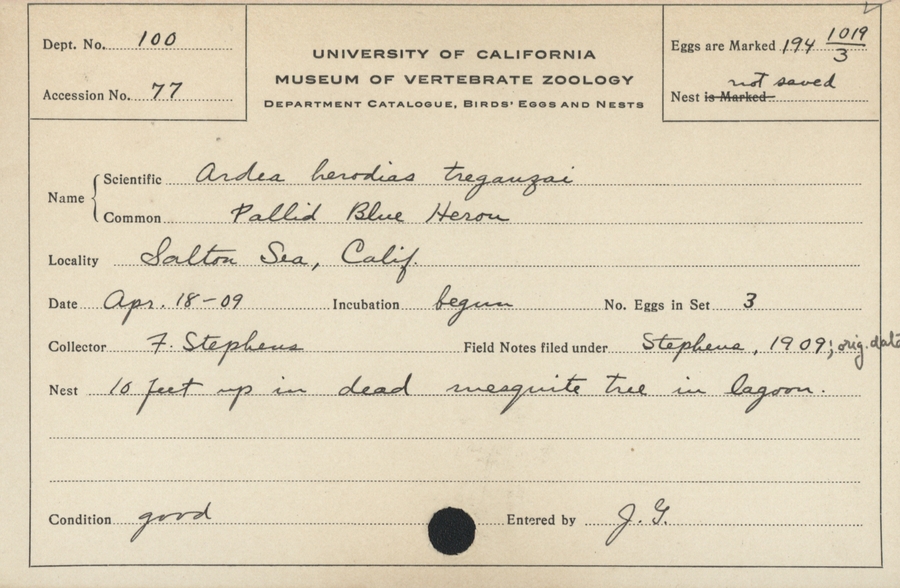 Dept. No. 100
Accession No. 77
UNIVERSITY OF CALIFORNIA
MUSEUM OF VERTEBRATE ZOOLOGY
DEPARTMENT CATALOGUE, BIRDS' EGGS AND NESTS
Eggs are Marked 194 1019/3
not saved
Nest is Marked
Name
Scientific Ardea herodias treganzai
Common Pallid Blue Heron
Locality Salton Sea, Calif.
Date Apr. 18-09 Incubation begun No. Eggs in Set 3
Collector F. Stephens Field Notes filed under Stephens, 1909; orig. data
Nest 10 feet up in dead mesquite tree in lagoon.
Condition good Entered by J. G.